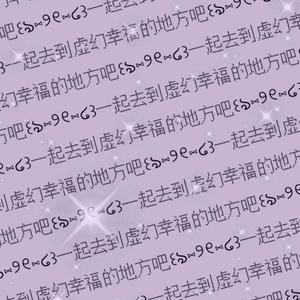 吧 一起去到虚幻幸福的地方吧
一起去到虚幻幸福的地方吧
幻幸福的地方吧 一起去到虚
方吧 一起去到虚幻幸福的
一起去到虚幻幸福的地方吧
幻幸福的地方吧 一起去到虚幻
地方吧 一起去到虚幻幸福
一起去到虚幻幸福的地方吧
幸福的地方吧 一起去到虚